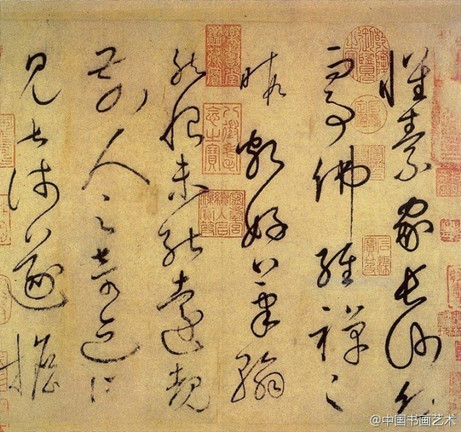 懷素家長沙幼
而事佛經禪之
暇頗好筆翰
然恨未能遠覩
前人之奇迹所
見甚淺遂擔
@中国书画艺术